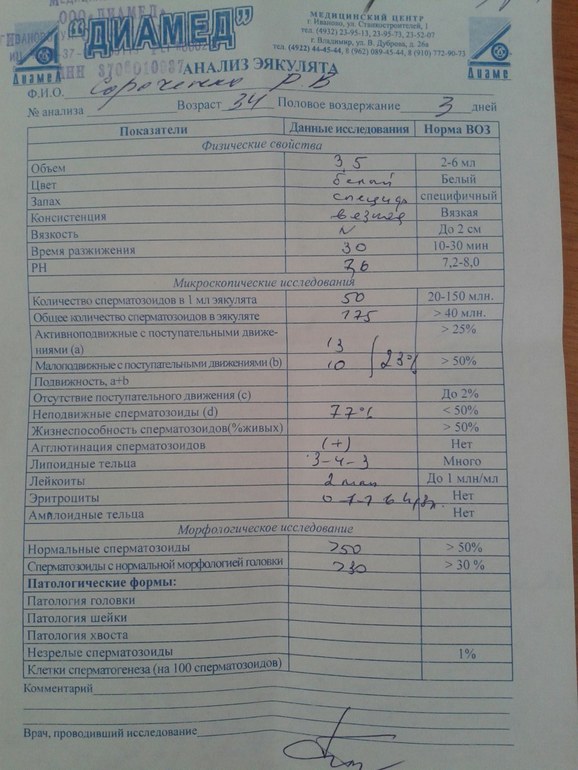 ООО "ДИАМЕД"
"ДИАМЕД"
МЕДИЦИНСКИЙ ЦЕНТР
г. Иваново, ул. Станкостроителей, 1
тел. (4932) 23-95-13, 23-95-73, 23-52-07
г. Владимир, ул. В. Дуброва, д. 26а
тел. (4922) 44-45-44, 8 (962) 089-45-44, 8 (910) 772-90-73
Диамед
Диамед
АНАЛИЗ ЭЯКУЛЯТА
Ф.И.О. Сороченко Р.В
№ анализа Возраст 34 Половое воздержание 3 дней
Показатели Данные исследования Норма ВОЗ
Физические свойства
Объем 3 5 2-6 мл
Цвет белый Белый
Запах специф специфичный
Консистенция вязкая Вязкая
Вязкость N До 2 см
Время разжижения 30 10-30 мин
РН 7,6 7,2-8,0
Микроскопические исследования
Количество сперматозоидов в 1 мл эякулята 50 20-150 млн.
Общее количество сперматозоидов в эякуляте 175 > 40 млн.
Активноподвижные с поступательными движе- > 25%
ниями (а) 13
Малоподвижные с поступательными движениями (b) 10 23% > 50%
Подвижность, a+b
Отсутствие поступательного движения (с) До 2%
Неподвижные сперматозоиды (d) 77% < 50%
Жизнеспособность сперматозоидов(%живых) > 50%
Агглютинация сперматозоидов (+) Нет
Липоидные тельца 3-4-3 Много
Лейкоиты 2 млн До 1 млн/мл
Эритроциты 0-1-1 в Нет
Амилоидные тельца Нет
Морфологическое исследование
Нормальные сперматозоиды >50 > 50%
Сперматозоиды с нормальной морфологией головки >30 > 30 %
Патологические формы:
Патология головки
Патология шейки
Патология хвоста
Незрелые сперматозоиды 1%
Клетки сперматогенеза (на 100 сперматозоидов)
Комментарий
Врач, проводивший исследование